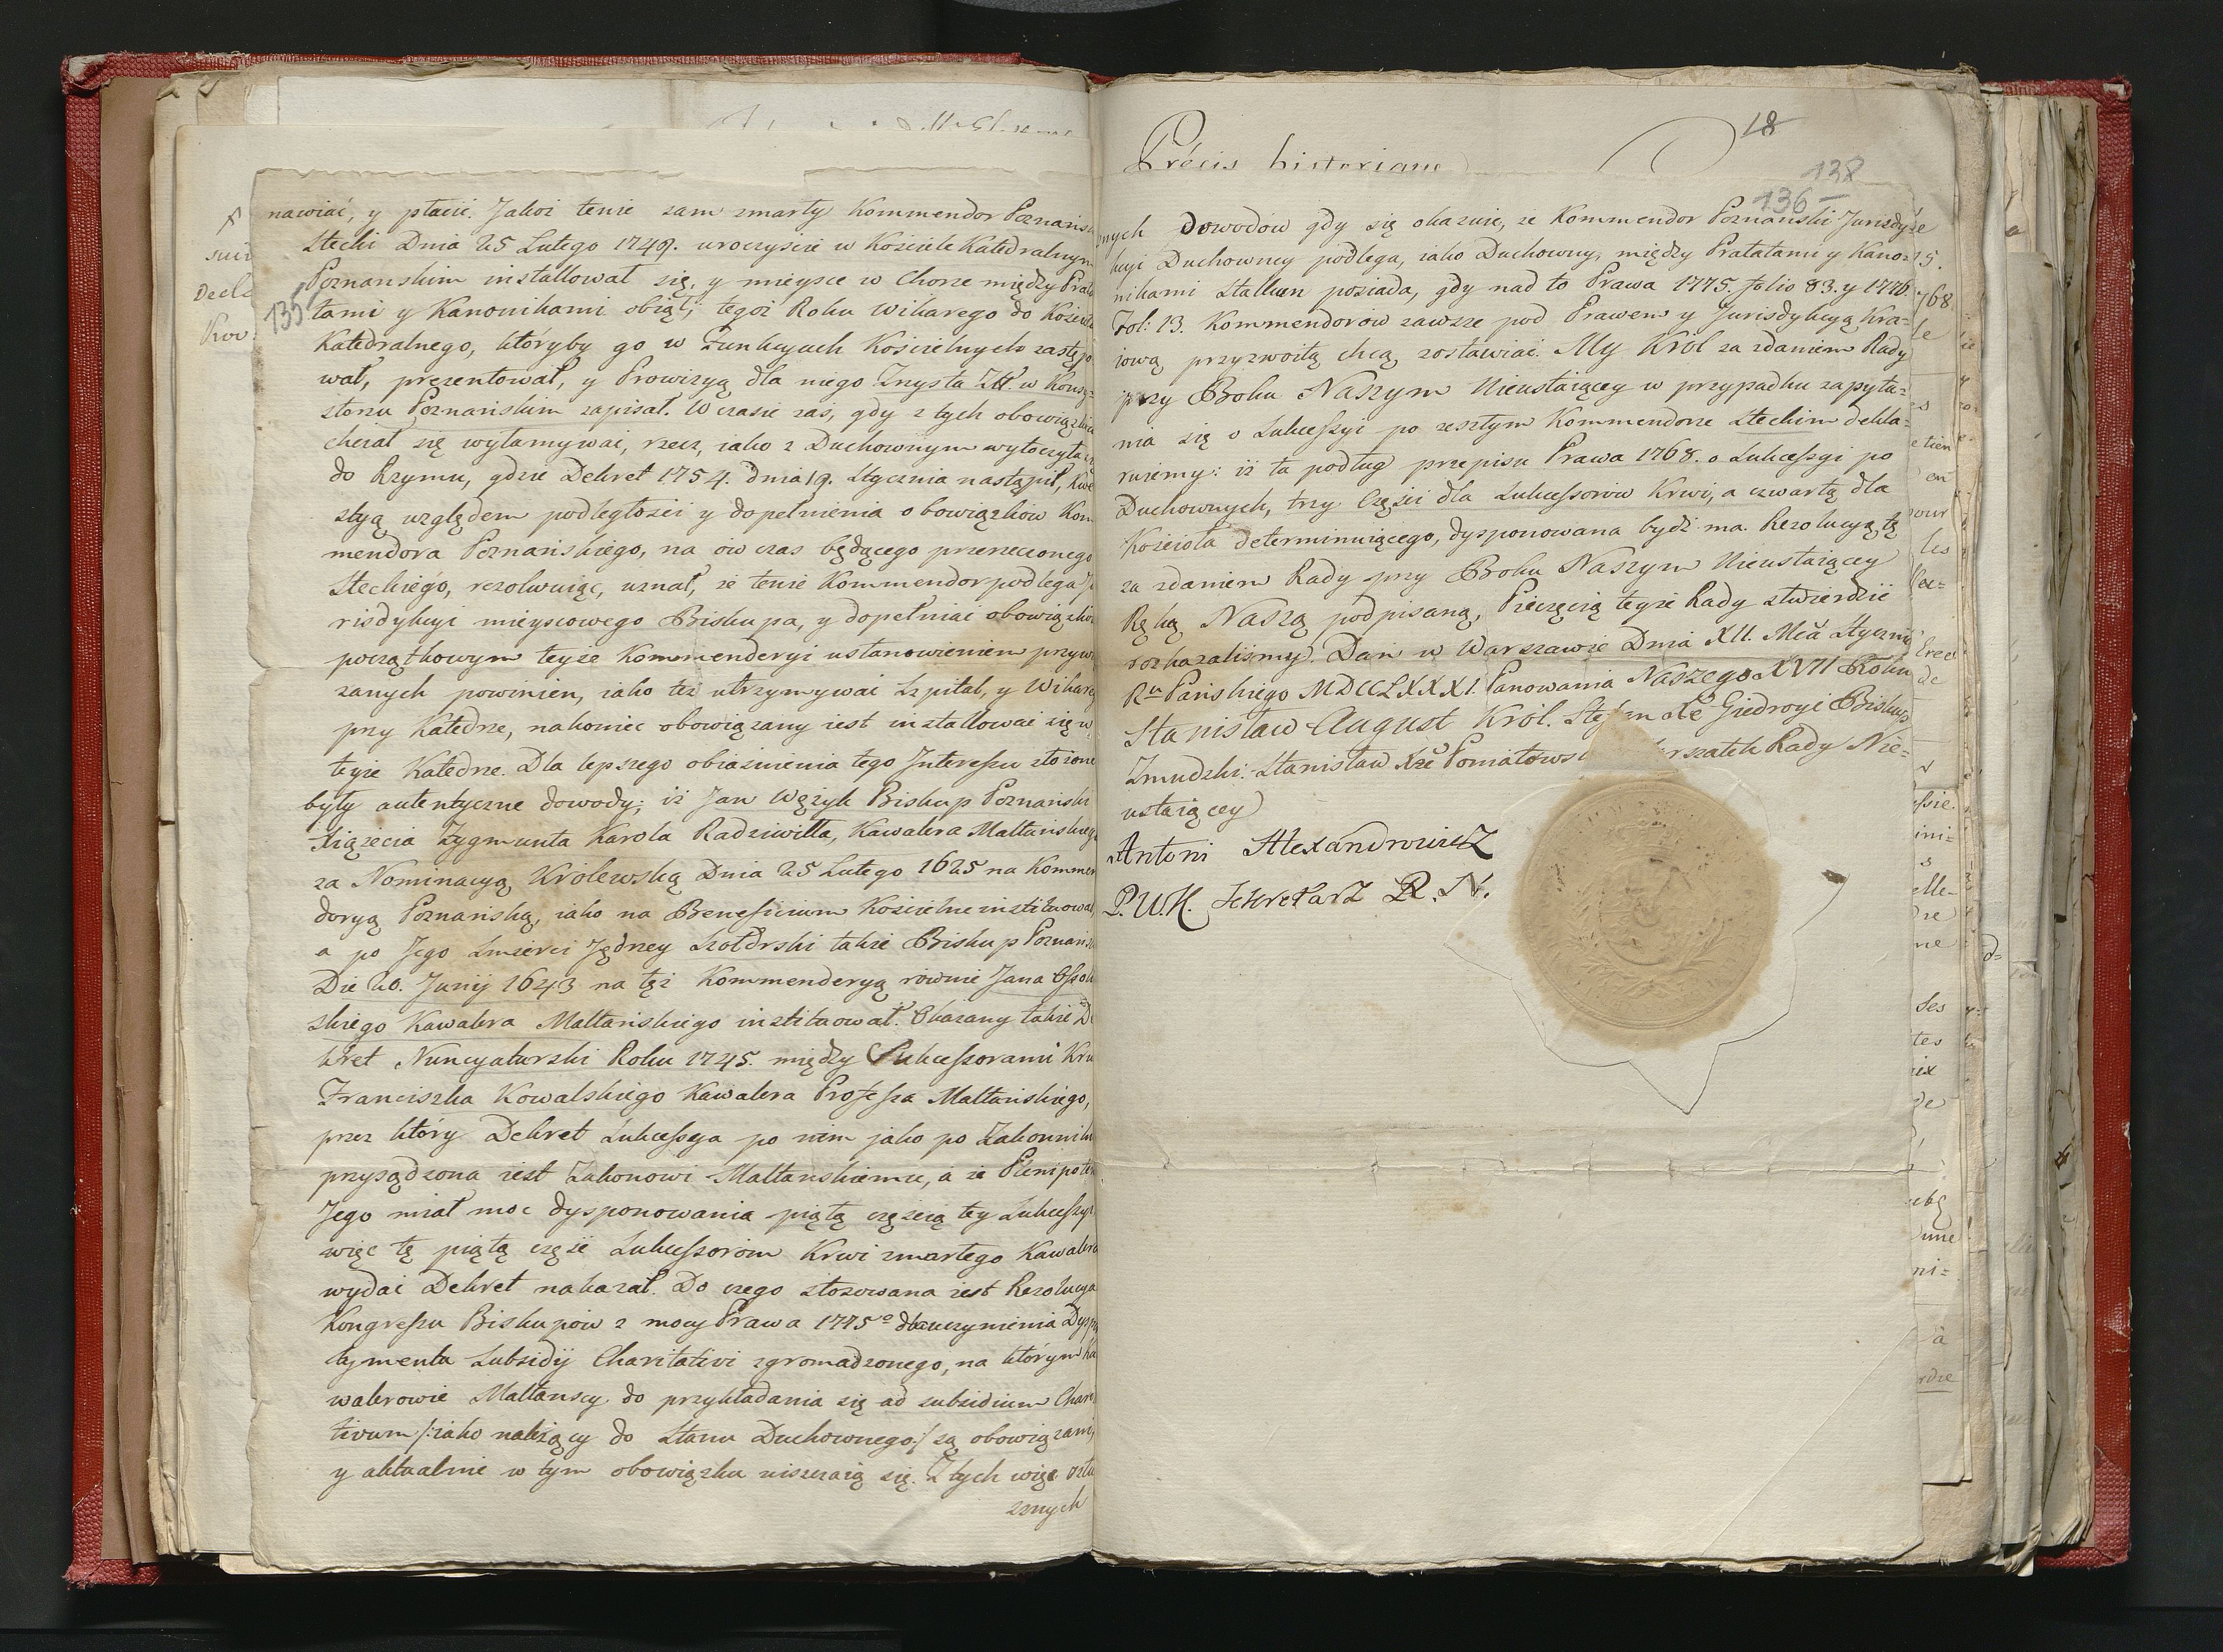 nawiać, y płacić. Jakoż tenże sam zmarły Kommendor Poznańs
Stecki Dnia 25 Lutego 1749. uroczyście w Kościele Katedralnym
Poznanskim installował się, y mieysce w Chorze między Prała
135
tami y Kanonikami obiął; tegoż Roku Wikarego do Kościoła
Katedralnego, któryby go w Funkcyach Kościelnych zastępo
wał, prezentował, y Prowizyą dla niego Zł. w Konsy=
storzu Poznańskim zapisał. W czasie zaś, gdy z tych obowiązków
chciał się wyłamywać, rzecz, iako z Duchownym wytoczyła
do Rzymu, gdzie Dekret 1754. dnia 19. Stycznia nastąpił, kwe
styą względem podległości y dopełnienia obowiązków Kom
mendora Poznańskiego, na ów czas będącego przerzeczonego
Steckiego, rezolwuiąc, uznał, że tenże Kommendor podlega Ju
risdykcyi mieyscowego Biskupa, y dopełniać obowiązków
początkowym teyże Kommenderyi ustanowieniem przywią
zanych powinien, iako też utrzymywać Szpital, y Wikarego
przy Katedrze, nakoniec obowiązany iest installować się w
teyże Katedrze. Dla lepszego obiaśnienia tego Interessu złożone
były autentyczne dowody; iż Jan Wężyk Biskup Poznański
Xiążęcia Zygmunta Karola Radziwiłła, Kawalera Maltańskiego
za Nominacyą Królewską Dnia 25 Lutego 1625 na Kommen
doryą Poznańską, iako na Beneficium Kościelne instituował,
a po Jego Śmierci Jędrzey Szołdrski także Biskup Poznańsk
Die 20. Junij 1643 na tęż Kommenderyą równie Jana Ossoli
skiego Kawalera Maltańskiego instituował. Okazany także De
kret Nuncyaturski Roku 1745. między Sukcessorami Krwi
Franciszka Kowalskiego Kawalera Professa Maltańskiego,
przez który Dekret Sukcessya po nim jako po Zakonniku
przysądzona iest Zakonowi Maltanskiemu, a że Plenipoten
Jego miał moc dysponowania piątą częścią tey Sukcessyi
więc tę piątą część Sukcessorom Krwi zmarłego Kawalera
wydać Dekret nakazał. Do czego stosowana iest Rezolucya
Kongressu Biskupów z mocy Prawa 1775º dla uczynienia Dyspar
tymentu Subsidij Charitativi zgromadzonego, na którym Ka
walerowie Maltanscy do przykładania się ad subsidium Chari
tivum /:iako należący do Stanu Duchownego:/ są obowiązani,
y aktualnie w tym obowiązku uiszczaią się. Z tych więc
znych
Précis historique
18
138
136
znych Dowodów gdy się okazuie, że Kommendor Poznański Jurisdy
kcyi Duchowney podlega, iako Duchowny, między Prałatami y Kano=
nikami Stallum posiada, gdy nad to Prawa 1775. folio 83. y 1776.
Fol: 13. Kommendorów zawsze pod Prawem y Jurisdykcyą Kra=
iową przyzwoitą chcą zostawiać. My Król za zdaniem Rady
przy Boku Naszym Nieustaiącey w przypadku zapyta=
nia się o Sukcessyi po zeszłym Kommendorze Steckim dekla=
ruiemy: iż ta podług przepisu Prawa 1768. o Sukcessyi po
Duchownych, trzy Części dla Sukcessorów Krwi, a czwartą dla
Kościoła determinuiącego, dysponowana bydź ma. Rezolucyą tę
za zdaniem Rady przy Boku Naszym Nieustaiącey
Ręką Naszą podpisaną, Pieczęcią teyże Rady stwierdzić
rozkazaliśmy. Dan w Warszawie Dnia XII. Mca Styczni
Ru Pańskiego MDCCLXXXI. Panowania Naszego XVII Roku
Stanisław August Król. Giedroyć Biskup
Żmudzki. Stanisław Xże Poniatows rszałek Rady Nie=
ustaiącey
Antoni Alexandrowicz
P.W.K. Sekretarz R. N.